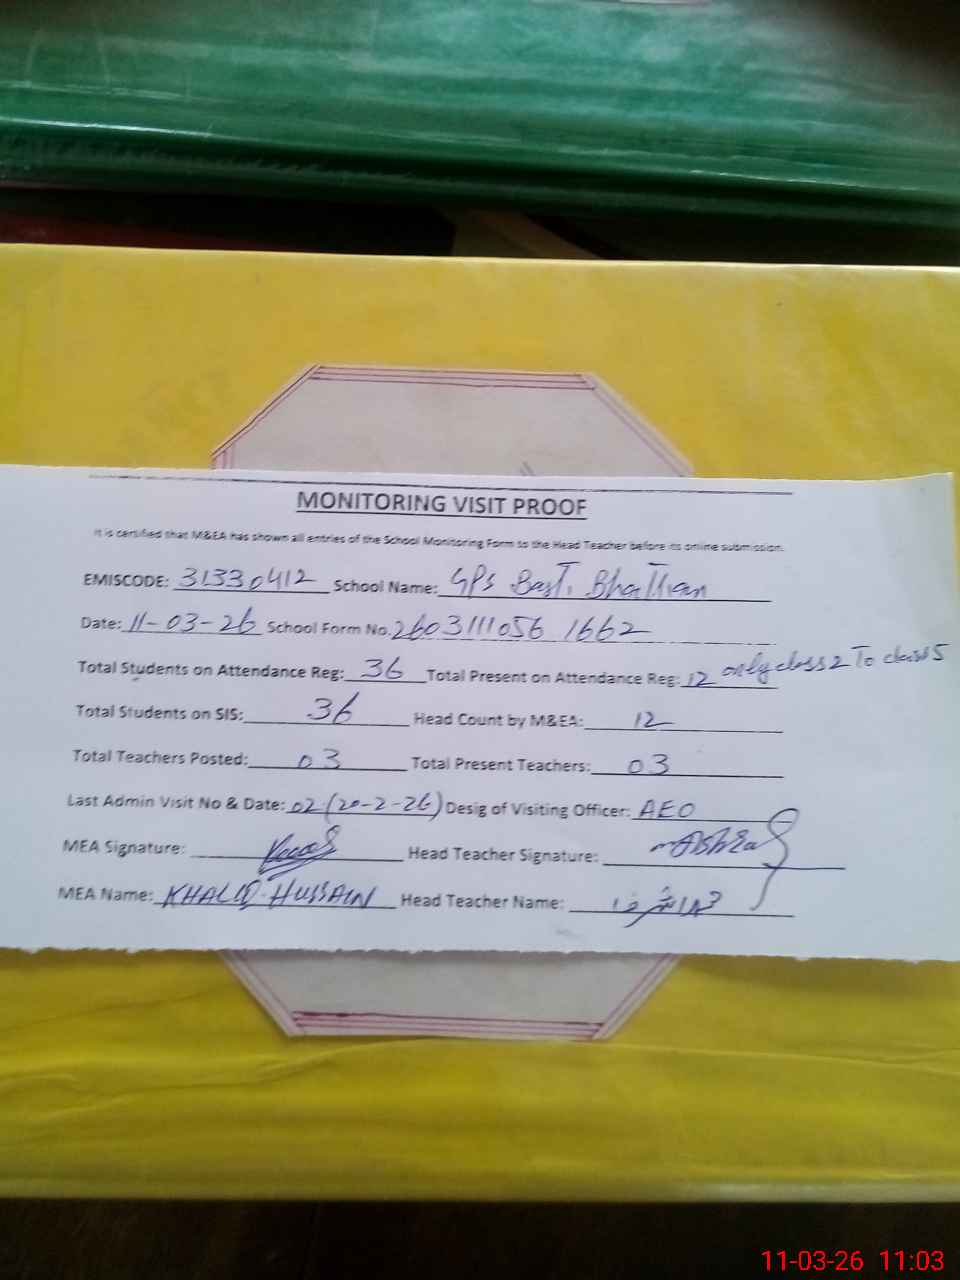 MONITORING VISIT PROOF
It is certified that M&EA has shown all entries of the School Monitoring Form to the Head Teacher before its online submission.
EMISCODE: 31330412 School Name: GPS Basti Bhattian
Date: 11-03-26 School Form No. 2603111056 1662
Total Students on Attendance Reg: 36 Total Present on Attendance Reg: 12 only class 2 To class 5
Total Students on SIS: 36 Head Count by M&EA: 12
Total Teachers Posted: 03 Total Present Teachers: 03
Last Admin Visit No & Date: 02 (20-2-26) Desig of Visiting Officer: AEO
MEA Signature: Head Teacher Signature:
MEA Name: KHALID HUSSAIN Head Teacher Name:
11-03-26 11:03